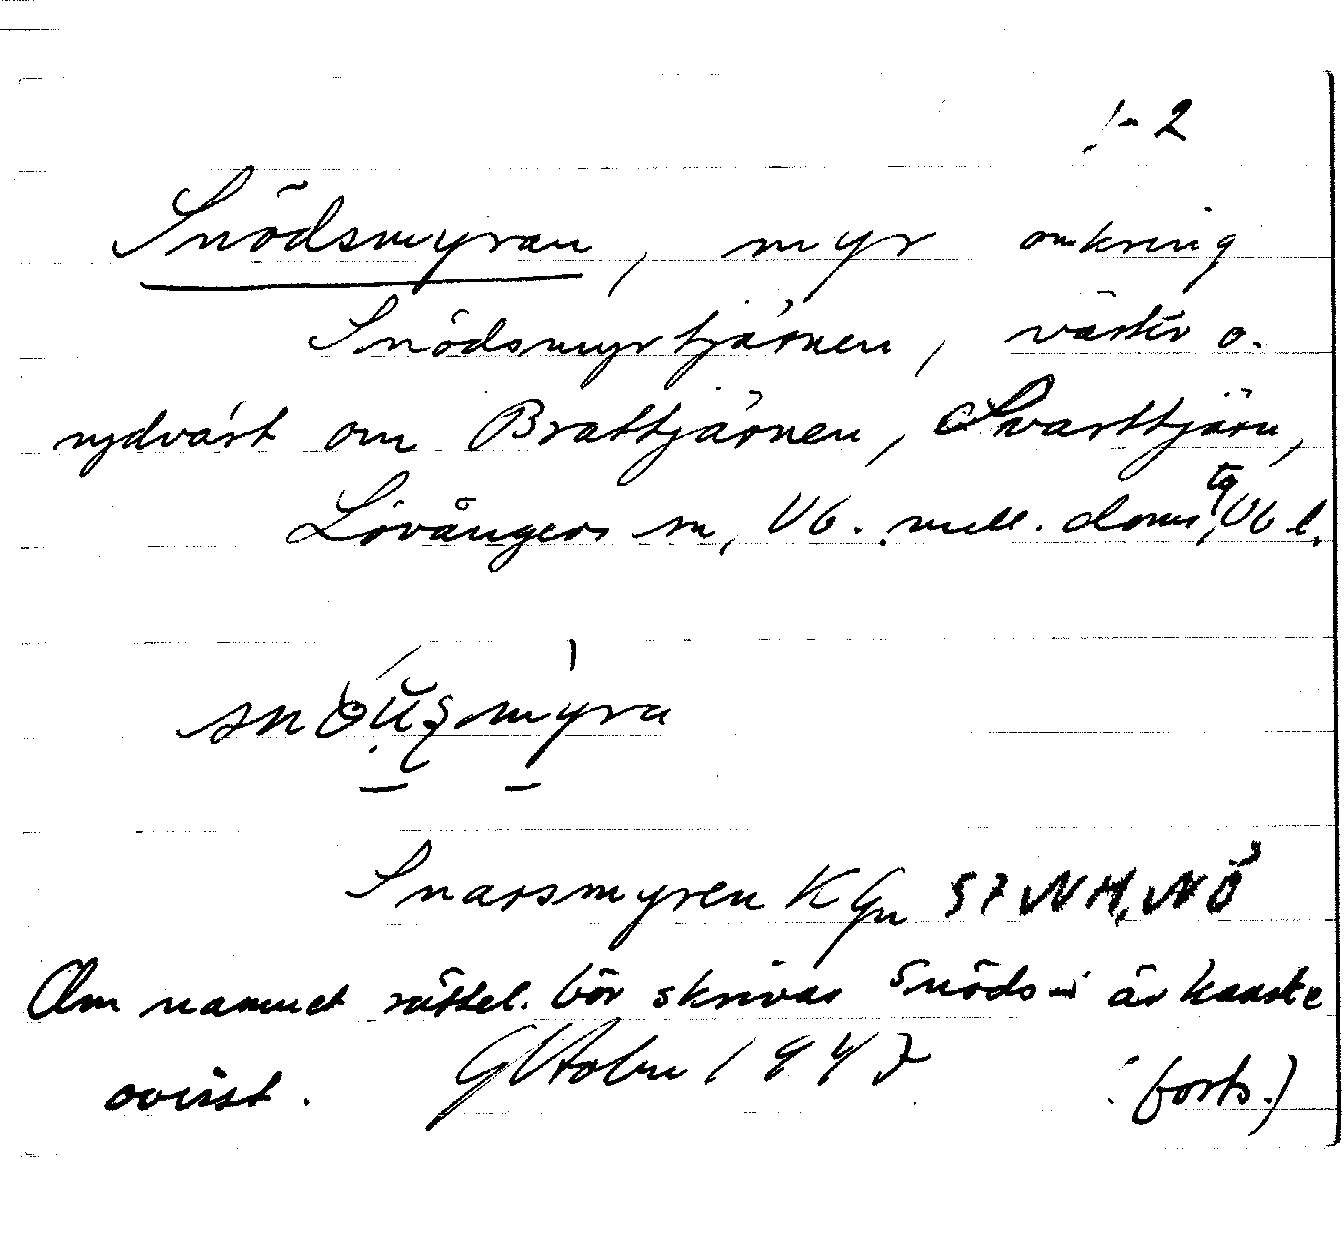 1-2
Snödsmyran, myr omkring
Snödsmyrtjärnen, väster o.
sydväst om Brattjärnen, Svarttjärn,
Lövångers sn, Vb. mell. doms tg, Vb l.
Snarsmyren K Gn 57 NV
Om namnet rättel. bör skrivas Snöds- är kanske
ovisst. G Holm 1947 (forts.)